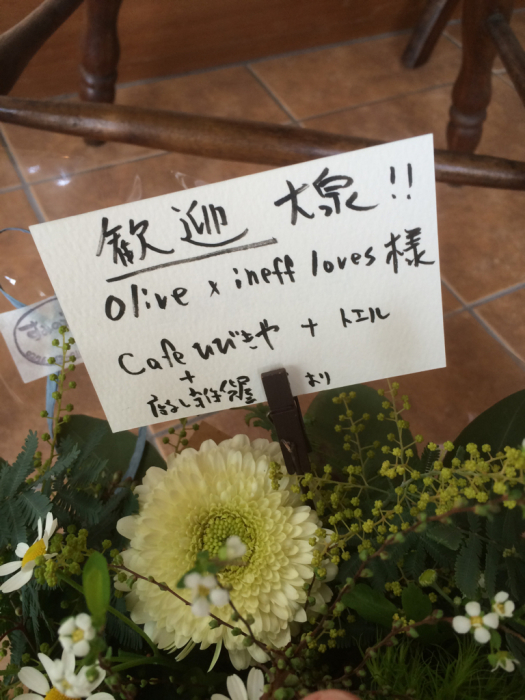 歓迎 大泉!!
Olive × ineff loves 様
Cafe ひびきや + トエル
+
雑貨屋 より